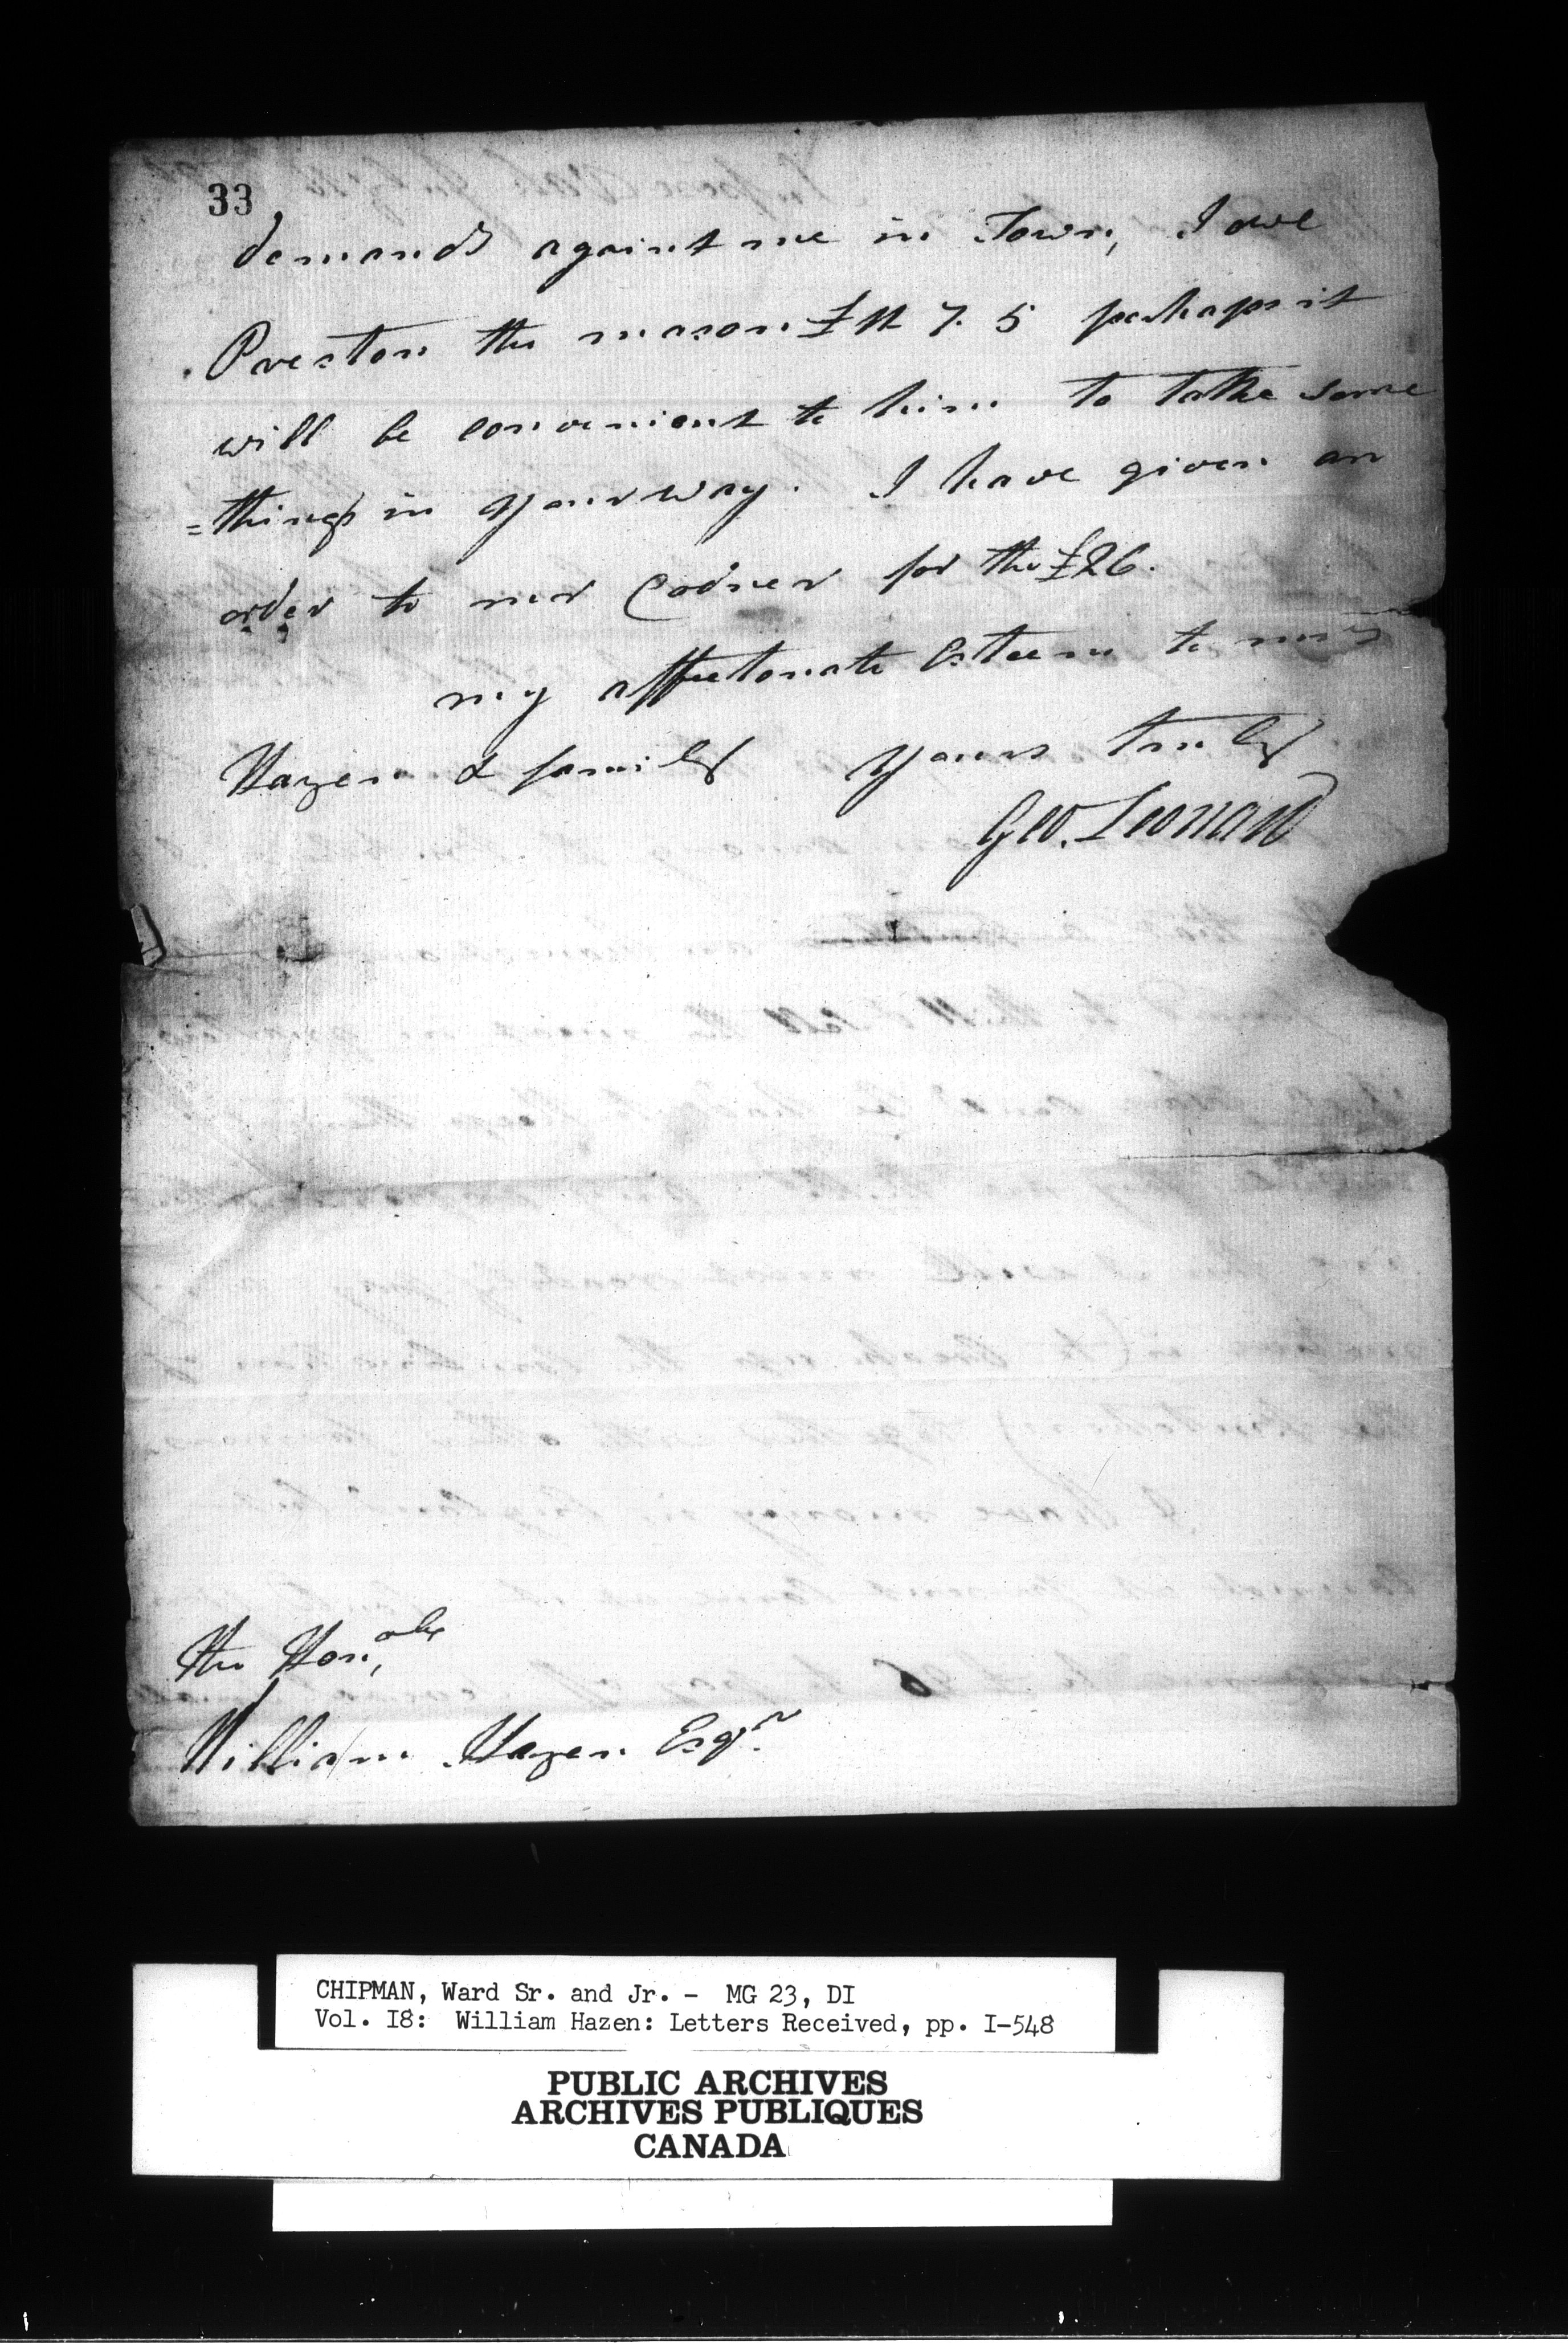 33
demands against me in Town, I owe
Preston the mason £11 7. 5 perhaps it
will be convenient to him to take some
=things in your way. I have given an
order to mr Codner for the £26.
my affectonate Esteem to mrs
Hazen & family yours truly
Geo. Leonard
The Honable
William Hazen Esqr
CHIPMAN, Ward Sr. and Jr. - MG 23, DI
Vol. I8: William Hazen: Letters Received, pp. I-548
PUBLIC ARCHIVES
ARCHIVES PUBLIQUES
CANADA